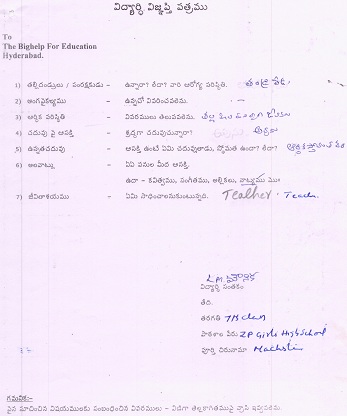 విద్యార్థి విజ్ఞప్తి పత్రము
To
The Bighelp For Education
Hyderabad.
1) తల్లిదండ్రులు / సంరక్షకుడు - ఉన్నారా? లేదా? వారి ఆరోగ్య పరిస్థితి.
2) అంగవైకల్యము - ఉన్నచో వివరించవలెను.
3) ఆర్థిక పరిస్థితి - వివరములు తెలుపవలెను.
4) చదువు పై ఆసక్తి - శ్రద్ధగా చదువుచున్నారా?
5) ఉన్నతచదువు - ఆసక్తి ఉంటే ఏమి చదువుతాడు, స్తోమత ఉందా? లేదా?
6) అలవాట్లు - ఏఏ పనుల మీద ఆసక్తి.
ఉదా - కవిత్వము, సంగీతము, అల్లికలు, నాట్యము మొ॥
7) జీవితాశయము - ఏమి సాధించాలనుకుంటున్నది. Teather. Teach.
విద్యార్థి సంతకం
తేది.
తరగతి 7th class
పాఠశాల పేరు ZP Girls High School
పూర్తి చిరునామా
గమనిక:-
పైన సూచించిన విషయములకు సంబంధించిన వివరములు - విడిగా తెల్లకాగితముపై వ్రాసి ఇవ్వవలెను.